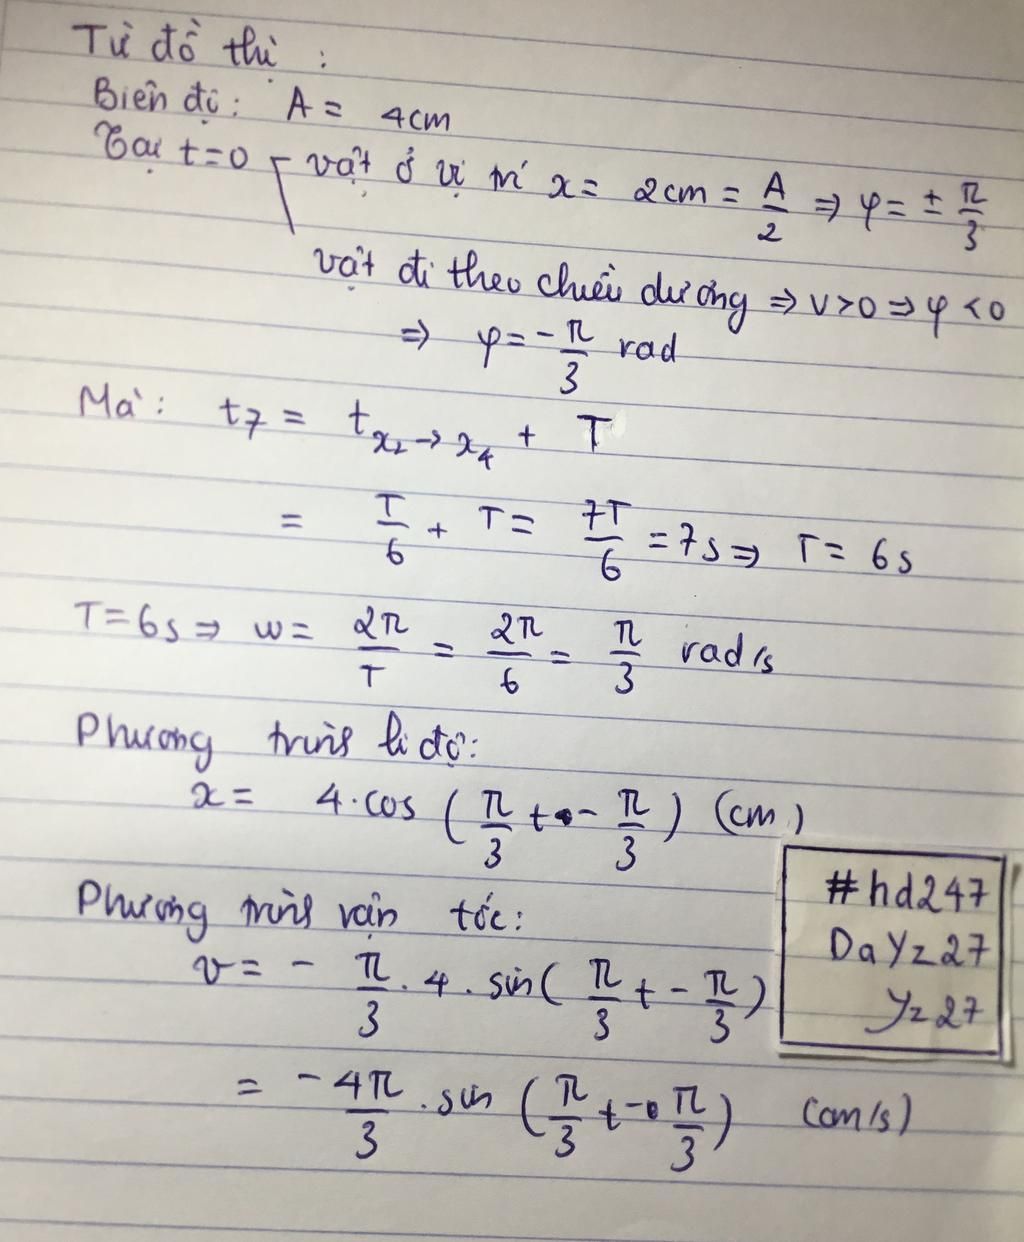 Từ đồ thị :
Biên độ: A = 4cm
Tại t=0 vật ở vị trí x = 2cm = A/2 ⇒ φ = ± π/3
vật đi theo chiều dương ⇒ v>0 ⇒ φ <0
⇒ φ = -π/3 rad
Mà: t7 = t x₂→x₄ + T
= T/6 + T = 7T/6 = 7s ⇒ T = 6s
T=6s ⇒ w = 2π/T = 2π/6 = π/3 rad/s
Phương trình li độ:
x = 4.cos (π/3 t - π/3) (cm)
Phương trình vận tốc:
v = - π/3 . 4 . sin (π/3 t - π/3)
= -4π/3 . sin (π/3 t - π/3) (cm/s)
#hd247
DaYz27
Yz27